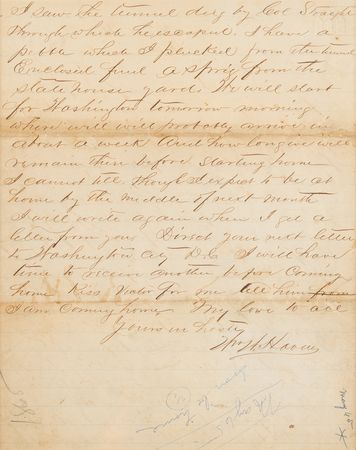 I saw the tunnel dug by Col Straight
through which he escaped. I have a
pebble which I plucked from the tunnel
Enclosed find a sprig from the
state house yard. We will start
for Washington tomorrow morning
where will will probably arrive in
about a week And how long we will
remain there before starting home
I cannot tell though I expect to be at
home by the middle of next month
I will write again when I get a
letter from you Direct your next letter
to Washington City D.C. I will have
time to receive another before coming
home Kiss Victor for me tell him from
I am Coming home My love to all
Yours in haste
Wm H